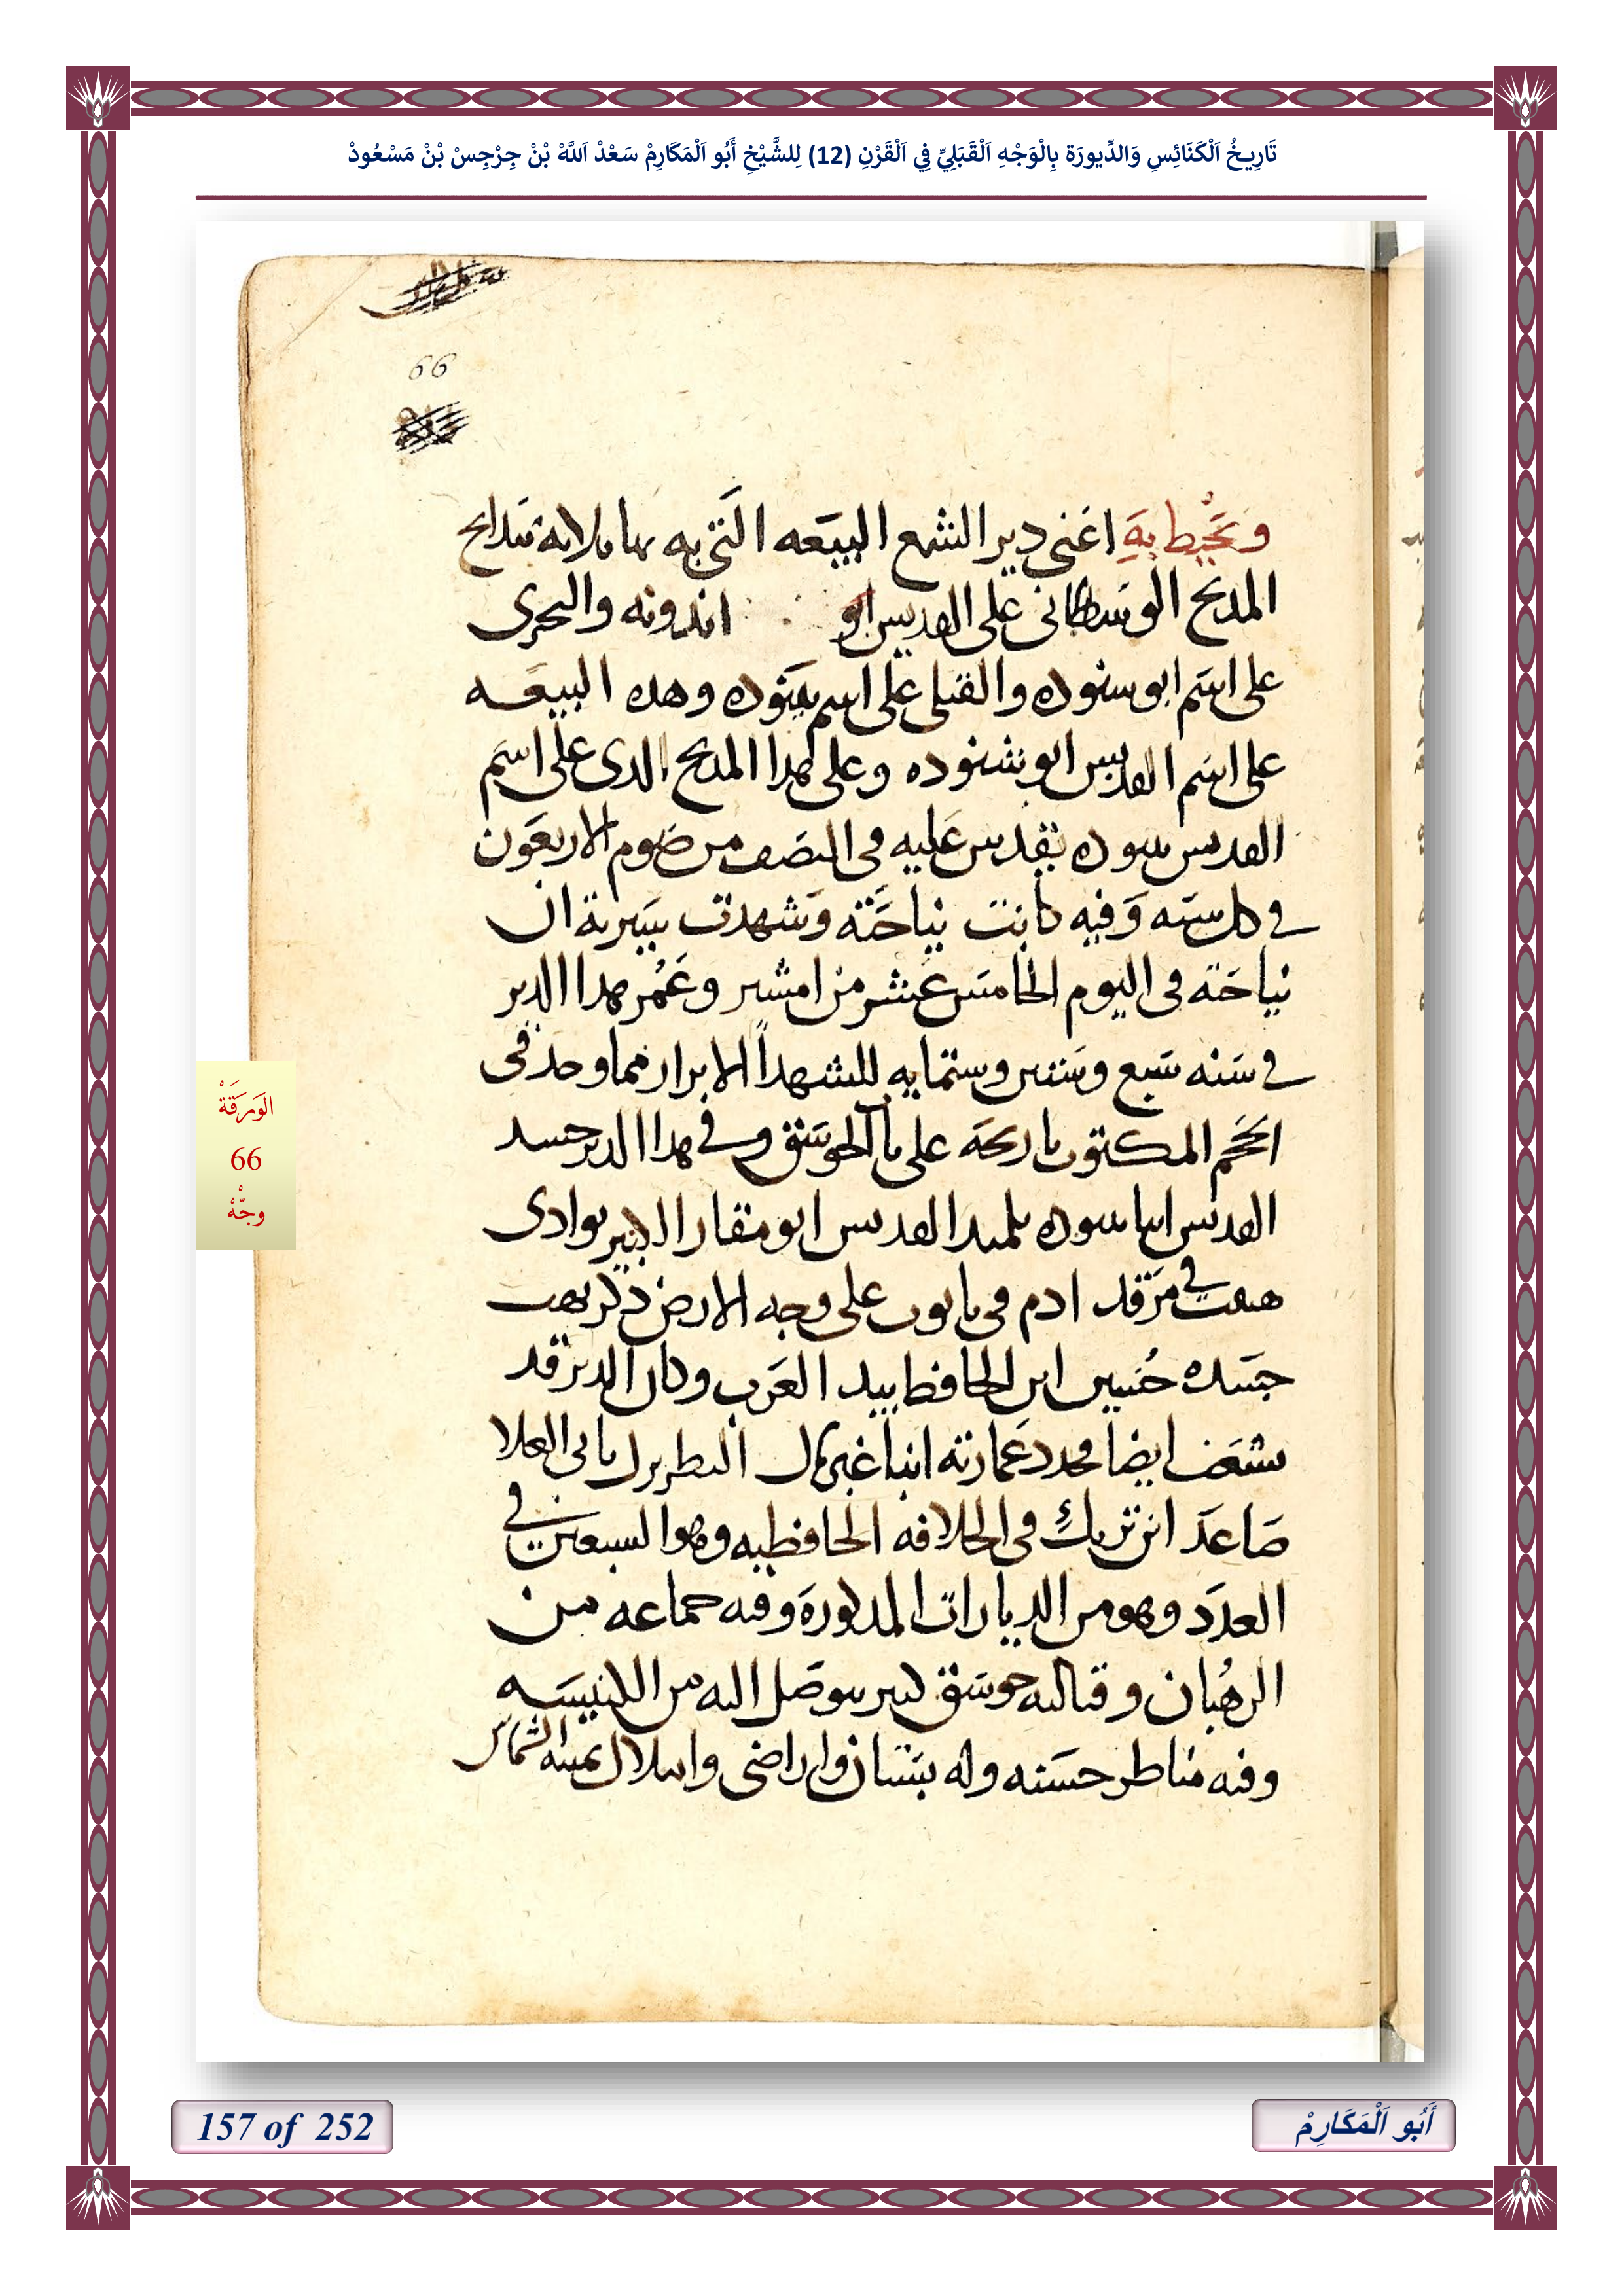 تَارِيخُ اَلْكَنَائِسِ وَالدِّيورَة بِالْوَجْهِ اَلْقَبَلِيِّ فِي اَلْقَرْنِ (12) لِلشَّيْخِ أَبُو اَلْمَكَارِمْ سَعْدْ اَللَّهْ بْنْ جِرْجِسْ بْنْ مَسْعُودْ
66
ويحيط به اعنى دير الشمع البيعه التى به بها ثلاثه مدابح
المدبح الوسطانى على القديس ابو اندرونه والبحرى
على اسم ابو سنوده والقبلى على اسم بسنوده وهده البيعه
على اسم القديس ابو شنوده وعلى هدا المدبح الدى على اسم
القديس سنوده يقدس عليه فى النصف من صوم الاربعون
فى كل سنه وفيه كانت نياحته وشهدت سيرته ان
نياحته فى اليوم الخامس عشر من امشير وعمر هدا الدير
فى سنه سبع وستين وستمايه للشهدا الابرار مما وجد فى
الختم المكتوب تاريخه على باب الجوسق وفى هدا الدير جسد
القديس انبا سنوده تلميد القديس ابو مقار الكبير بوادى
هبيب فى مرقد ادم فى تابوت على وجه الارض دكر نهب
جسده حنين ابن الحافظ بيد العرب وكان الدير قد
تشعث ايضا فجدد عمارته انبا غبريال البطريرك بابى العلا
صاعد ابن تريك فى الخلافه الحافظيه وهو السبعين فى
العدد وهو من الديارات المدكورة وفيه جماعه من
الرهبان وقبالته جوسق كبير يتوصل اليه من الكنيسه
وفيه مناظر حسنه وله بستان واراضى واملاك
الوَرَقَةْ
66
وجّهْ
157 of 252
أَبُو اَلْمَكَارِمْ